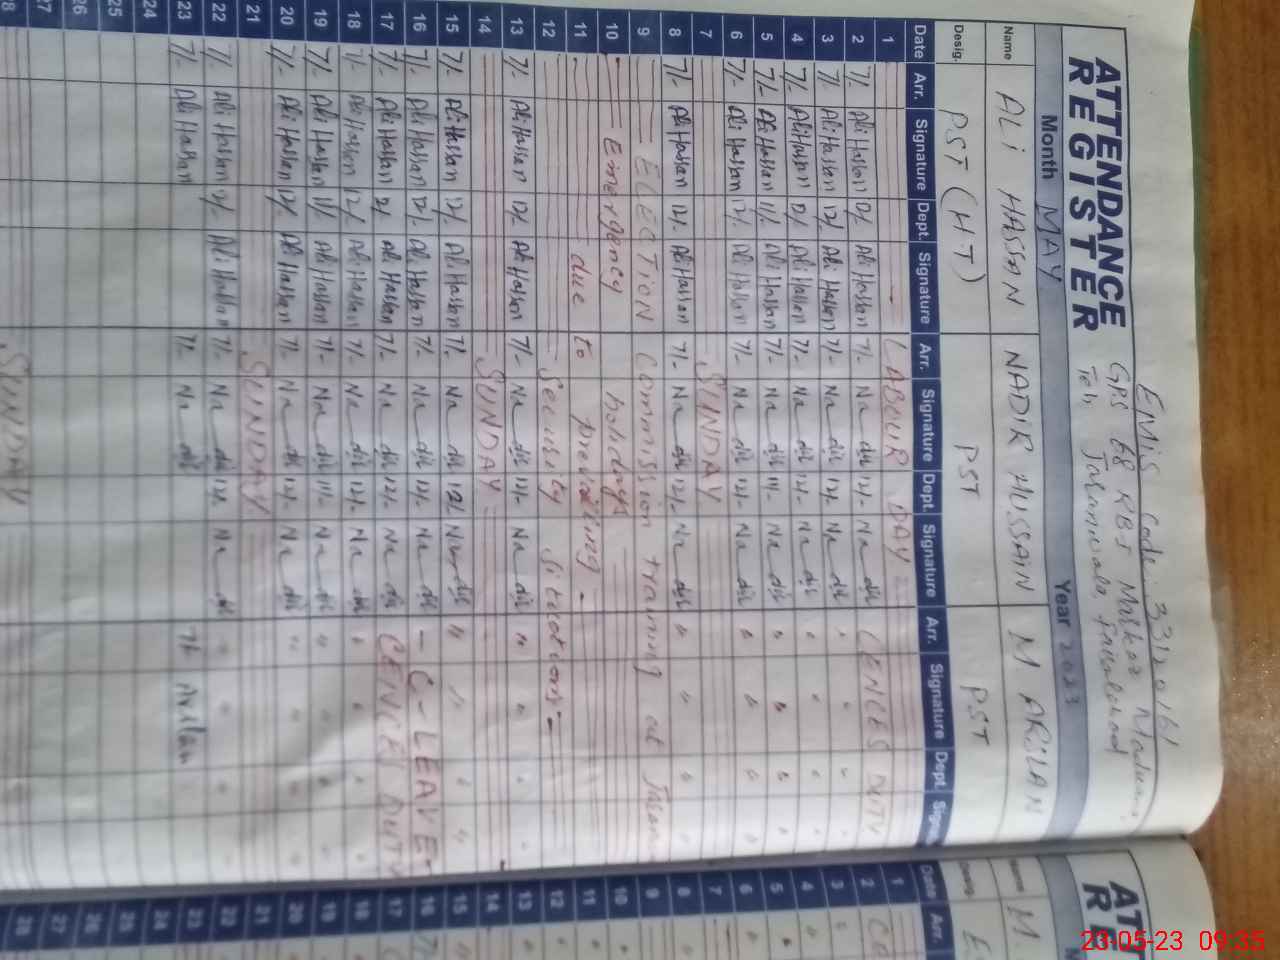 ATTENDANCE
REGISTER
EMIS Code: 33120161
GPS 68 RBJ Markaz
Teh, Jaranwala, Faisalabad
Month MAY Year 2023
Name ALI HASSAN NADIR HUSSAIN M ARSLAN
Desig. PST (H.T) PST PST
Date Arr. Signature Dept. Signature Arr. Signature Dept. Signature Arr. Signature Dept.
1 LABOUR DAY
2 7/- Ali Hassan 12/- Ali Hassan 7/- Na dir 12/- Na dir CENCES DUTY
3 7/- Ali Hassan 12/- Ali Hassan 7/- Na dir 12/- Na dir "
4 7/- Ali Hassan 12/- Ali Hassan 7/- Na dir 12/- Na dir "
5 7/- Ali Hassan 11/- Ali Hassan 7/- Na dir 11/- Na dir "
6 7/- Ali Hassan 12/- Ali Hassan 7/- Na dir 12/- Na dir "
7 SUNDAY
8 7/- Ali Hassan 12/- Ali Hassan 7/- Na dir 12/- Na dir "
9 ELECTION Commission training at
10 Emergency holidays
11 due to prevailing
12 Security situations
13 7/- Ali Hassan 12/- Ali Hassan 7/- Na dir 12/- Na dir "
14 SUNDAY
15 7/- Ali Hassan 12/- Ali Hassan 7/- Na dir 12/- Na dir "
16 7/- Ali Hassan 12/- Ali Hassan 7/- Na dir 12/- Na dir - C-LEAVE
17 7/- Ali Hassan 12/ Ali Hassan 7/- Na dir 12/- Na dir CENCES DUTY
18 7/- Ali Hassan 12/ Ali Hassan 7/- Na dir 12/- Na dir "
19 7/- Ali Hassan 11/ Ali Hassan 7/- Na dir 11/- Na dir "
20 7/- Ali Hassan 12/ Ali Hassan 7/- Na dir 12/- Na dir "
21 SUNDAY
22 7/- Ali Hassan 12/ Ali Hassan 7/- Na dir 12/- Na dir "
23 7/- Ali Hassan 7/- Na dir 7/- Arslan
24
25
26
27
28 SUNDAY
Name M.
Date Arr.
1
2
3
4
5
6
7
8
9
10
11
12
13
14
15
16
17
18
19
20
21
22
23
24
25
26
27
28
23-05-23 09:35